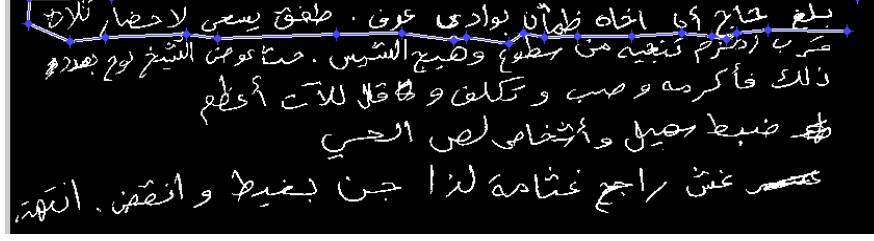 بلغ حاج أن اخاه ظمآن بوادى عوف . طفق يسعى لاحضار ثلاث
قرب زمزم تنجيه من سطوع وهيج الشمس . حث عوض الشيخ نوح بعد
ذلك فأكرمه وصب و تكلف و قال للآت أعظم
ضبط صهيل وأشخاص لص الحي
غش راجح غثامة لذا جن بغيظ وانقض . انتهت